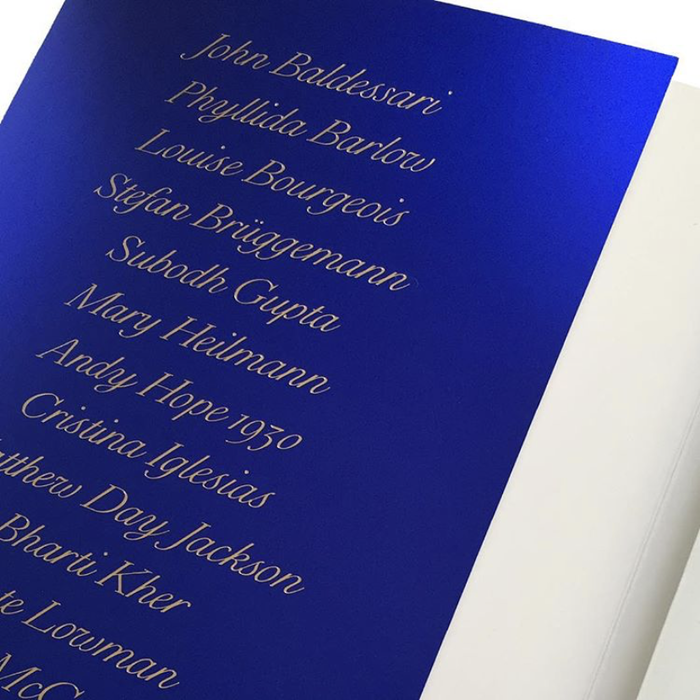 John Baldessari
Phyllida Barlow
Louise Bourgeois
Stefan Brüggemann
Subodh Gupta
Mary Heilmann
Andy Hope 1930
Cristina Iglesias
Day Jackson
Bharti Kher
Lowman